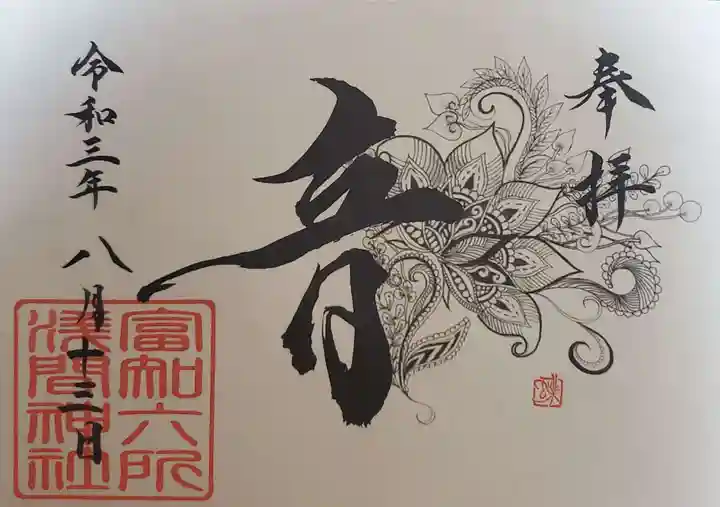 奉拝
音
令和三年 八月十三日
富知六所
浅間神社